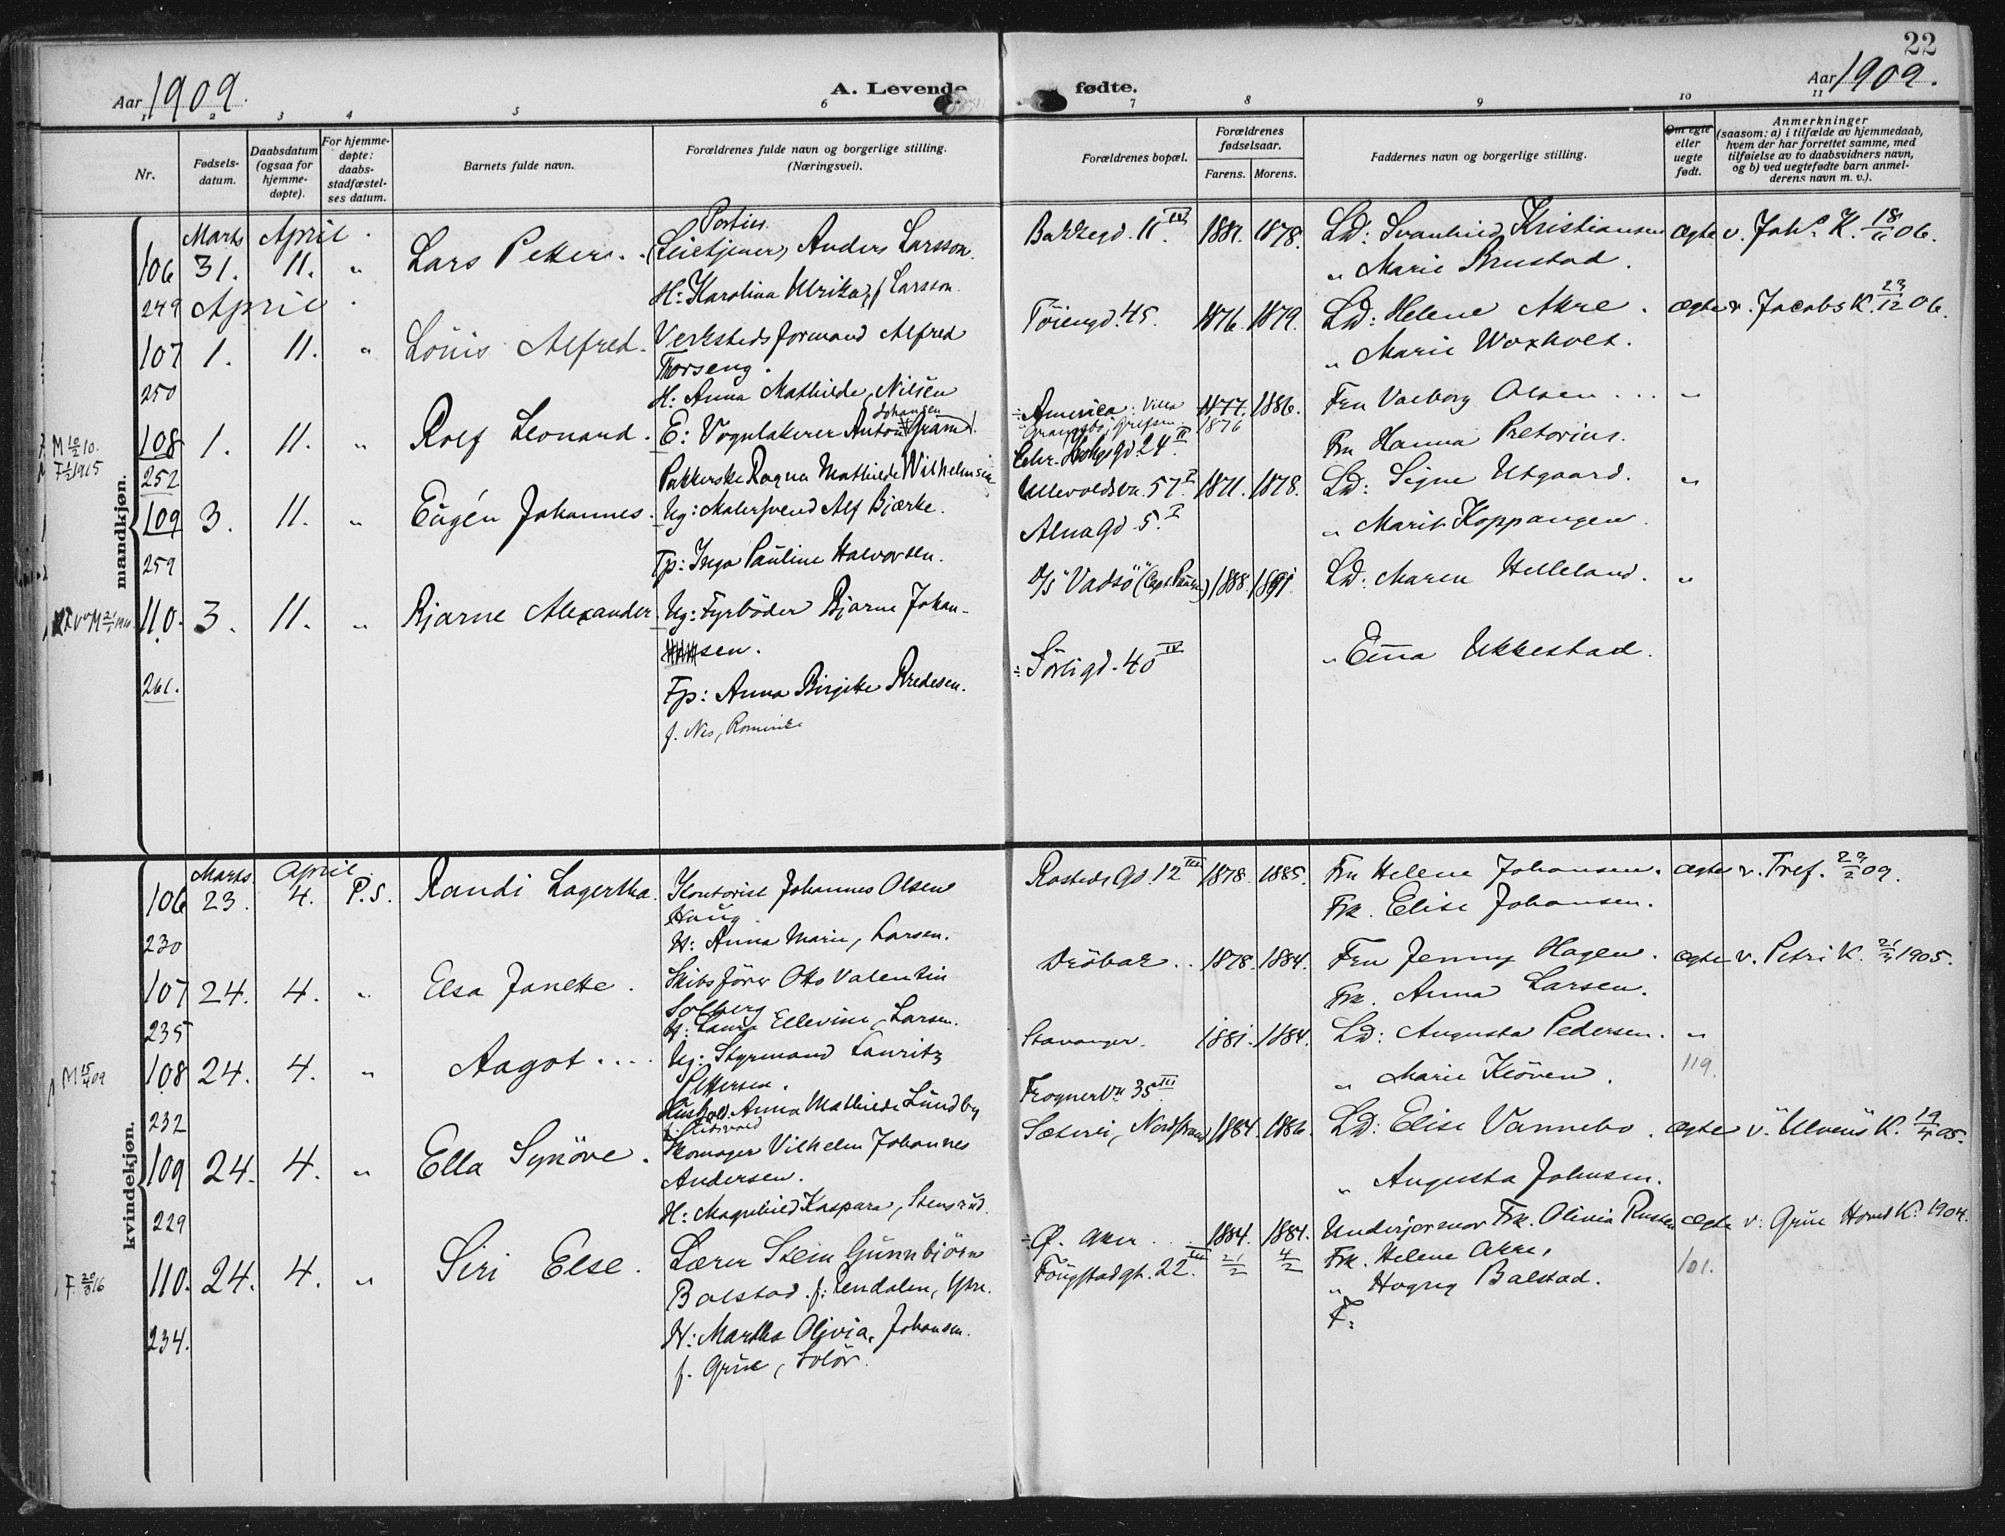 22
Aar 1909. A. Levende fødte. Aar 1909.
1 2 3 4 5 6 7 8 9 10 11
Nr.
Fødsels-
datum.
Daabsdatum
(ogsaa for
hjemme-
døpte).
For hjemme-
døpte:
daabs-
stadfæstel-
ses datum.
Barnets fulde navn.
Forældrenes fulde navn og borgerlige stilling.
(Næringsvei).
Forældrenes bopæl.
Forældrenes
fødselsaar.
Farens. Morens.
Faddernes navn og borgerlige stilling.
Om egte
eller
uegte
født.
Anmerkninger
(saasom: a) i tilfælde av hjemmedaab,
hvem der har forrettet samme, med
tilføielse av to daabsvidners navn,
og b) ved uegtefødte barn anmel-
derens navn m. v.).
mandkjøn.
Marts April.
106 31. 11. " Lars Petter. Portier
(Leietjener) Anders Larsson.
H: Karolina Ulrika, f Larsson.
Bakkegd. 11 IV 1881. 1878. Ld: Svanhild Kristiansen ægte v. Joh. K. 18/11 06.
" Marie Brustad.
249 April.
107 1. 11. " Louis Alfred. Verkstedsformand Alfred
Thorseng.
H: Anna Mathilde, Nilsen
Töiengd. 45. 1876. 1879. Ld: Helene Akre. ægte v. Jacobs K. 23/12 06.
" Marie Woxholt.
250
M 10/2 10.
F 1/2 1915
108 1. 11. " Rolf Leonard. E: Vognlakerer Anton Johansen Gram.
Pakkerske Ragna Mathilde Wilhelmsen
America: Villa
Grefsen
24 II
1877. 1886.
1876
Fru Valborg Olsen ... "
Fru Hanna Pretorius.
252
109 3. 11. " Eugén Johannes. Ug: Malersvend Alf Bjerke.
Fp: Inga Pauline Halvorsen.
Ullevoldsvn. 57 I 1871. 1878. Ld: Signe Utgaard. "
Alnagd. 5. I
" Marit Koppangen
259
110. 3. 11. " Bjarne Alexander Ug: Fyrbøder Bjarne Johan-
sen.
Fp: Anna Birgitte Bredesen.
f. Nes, Romerike
D/S "Vadsö" 1888. 1891 Ld: Maren Helleland. "
Sörligd. 40 IV
" Emma Ukkestad.
261.
kvindekjøn.
Marts April.
106 23. 4. P.S. Randi Lagertha. Kontorist Johannes Olsen
Haug.
H: Anna Marie, Larsen.
Rosteds Gd. 12 III 1878. 1885. Fru Helene Johansen. ægte v. Tref. 09.
Frk. Elise Johansen.
230
107 24. 4. " Elsa Janette. Skibsförer Otto Valentin
Solberg
H: Laura Ellevine, Larsen.
Dröbak.. 1878. 1884. Fru Jenny Hagen. ægte v. Petri K. 1905.
Frk. Anna Larsen.
235
M 15/4 09
108 24. 4. " Aagot.... Ug: Styrmand Lauritz
Pettersen.
Hushold. Anna Mathilde Lundby
f. Eidsvold
Stavanger. 1881. 1884. Ld: Augusta Pedersen. "
Frognervn 35 III
" Marie Klöven. 119.
232
109 24. 4. " Ella Synöve. Skomager Vilhelm Johannes
Andersen.
H: Magnhild Kaspara, Stensrud.
Sæteri, Nordstrand 1884. 1886. Ld: Elise Vannebo. ægte v. Ulvens K. 19/4 05.
" Augusta Johnsen.
229
110. 24. 4. " Siri Else. Lærer Stein Gunnbjörn
Balstad. f: Rendalen, Ytre.
H: Martha Olivia, Johansen.
f. Grue, Solör.
Ö. Aker. 1884. 1884.
Fougstadgt. 22. III 21/2 4/2
Underjormor Frk. Olivia Rusten ægte v. Grue Hoved K. 1904.
Frk. Helene Akre, 101.
" Hogny Balstad.
F:
F. 20/3 16
234.